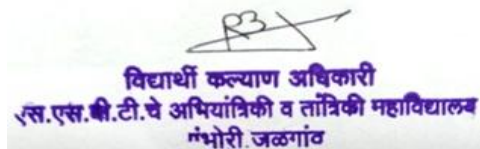 विद्यार्थी कल्याण अधिकारी
एस.एस.बी.टी.चे अभियांत्रिकी व तांत्रिकी महाविद्यालय
बांभोरी जळगांव